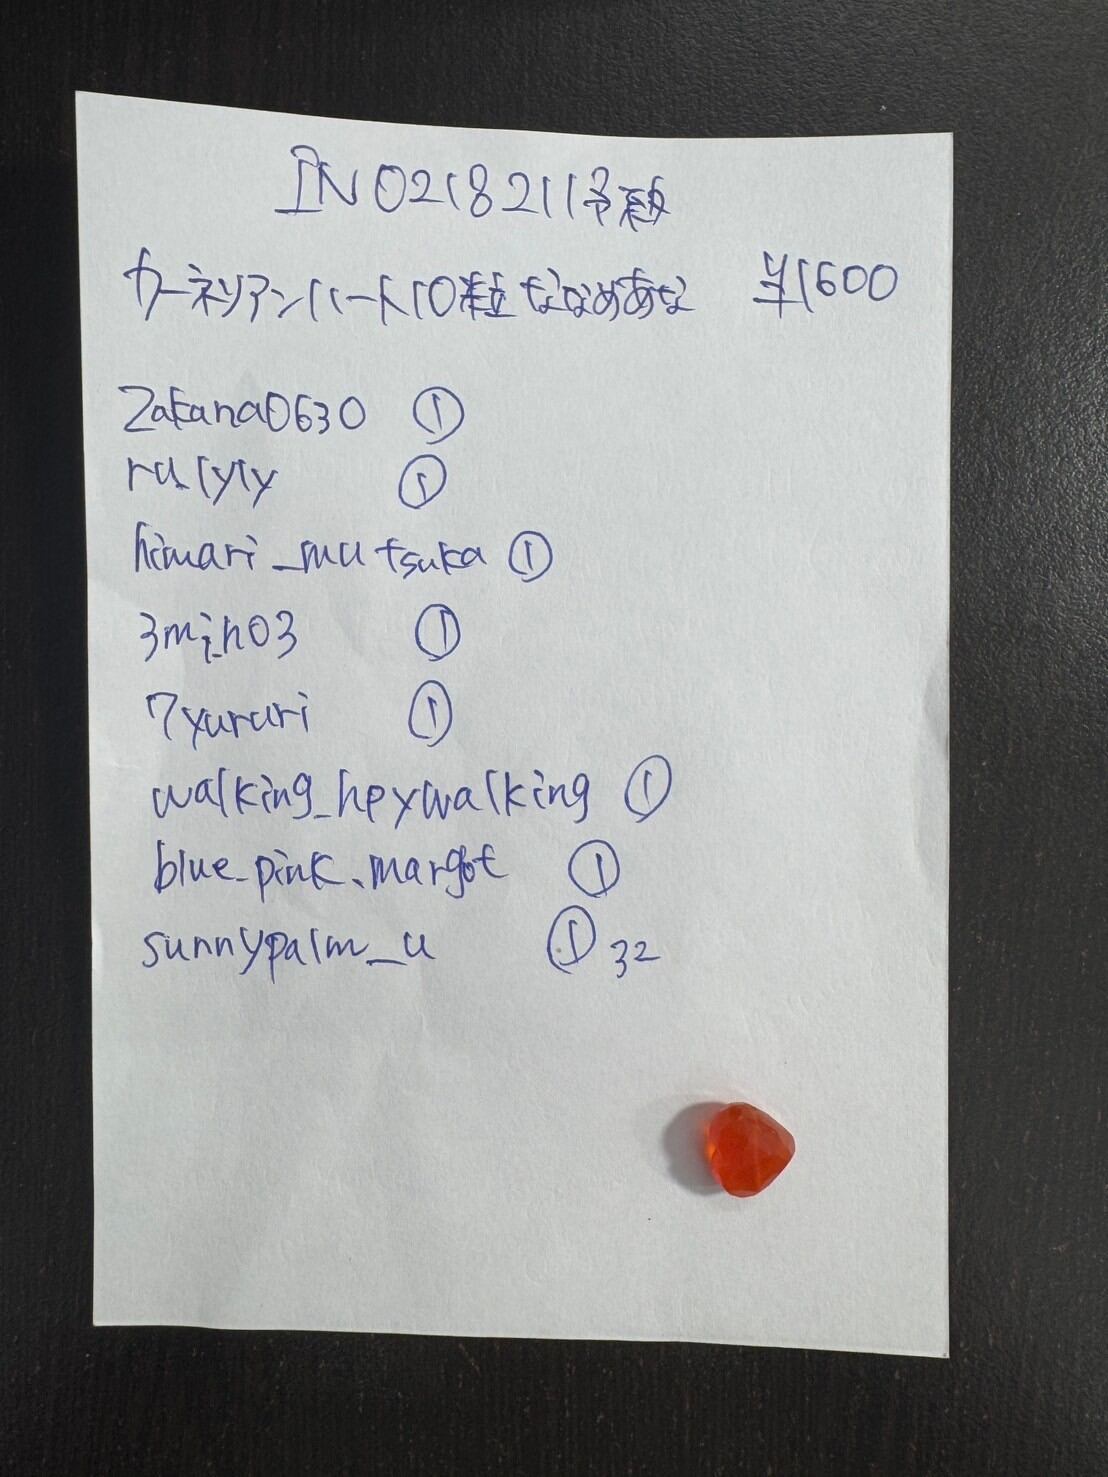 IN0218211予約
カーネリアンハート10粒ななめあな ¥1600
zakana0630 ①
ru_lyly ①
himari_mutsuka ①
3mi_n03 ①
7yururi ①
walking_heywalking ①
blue_pink.margot ①
sunnypalm_u ① 32